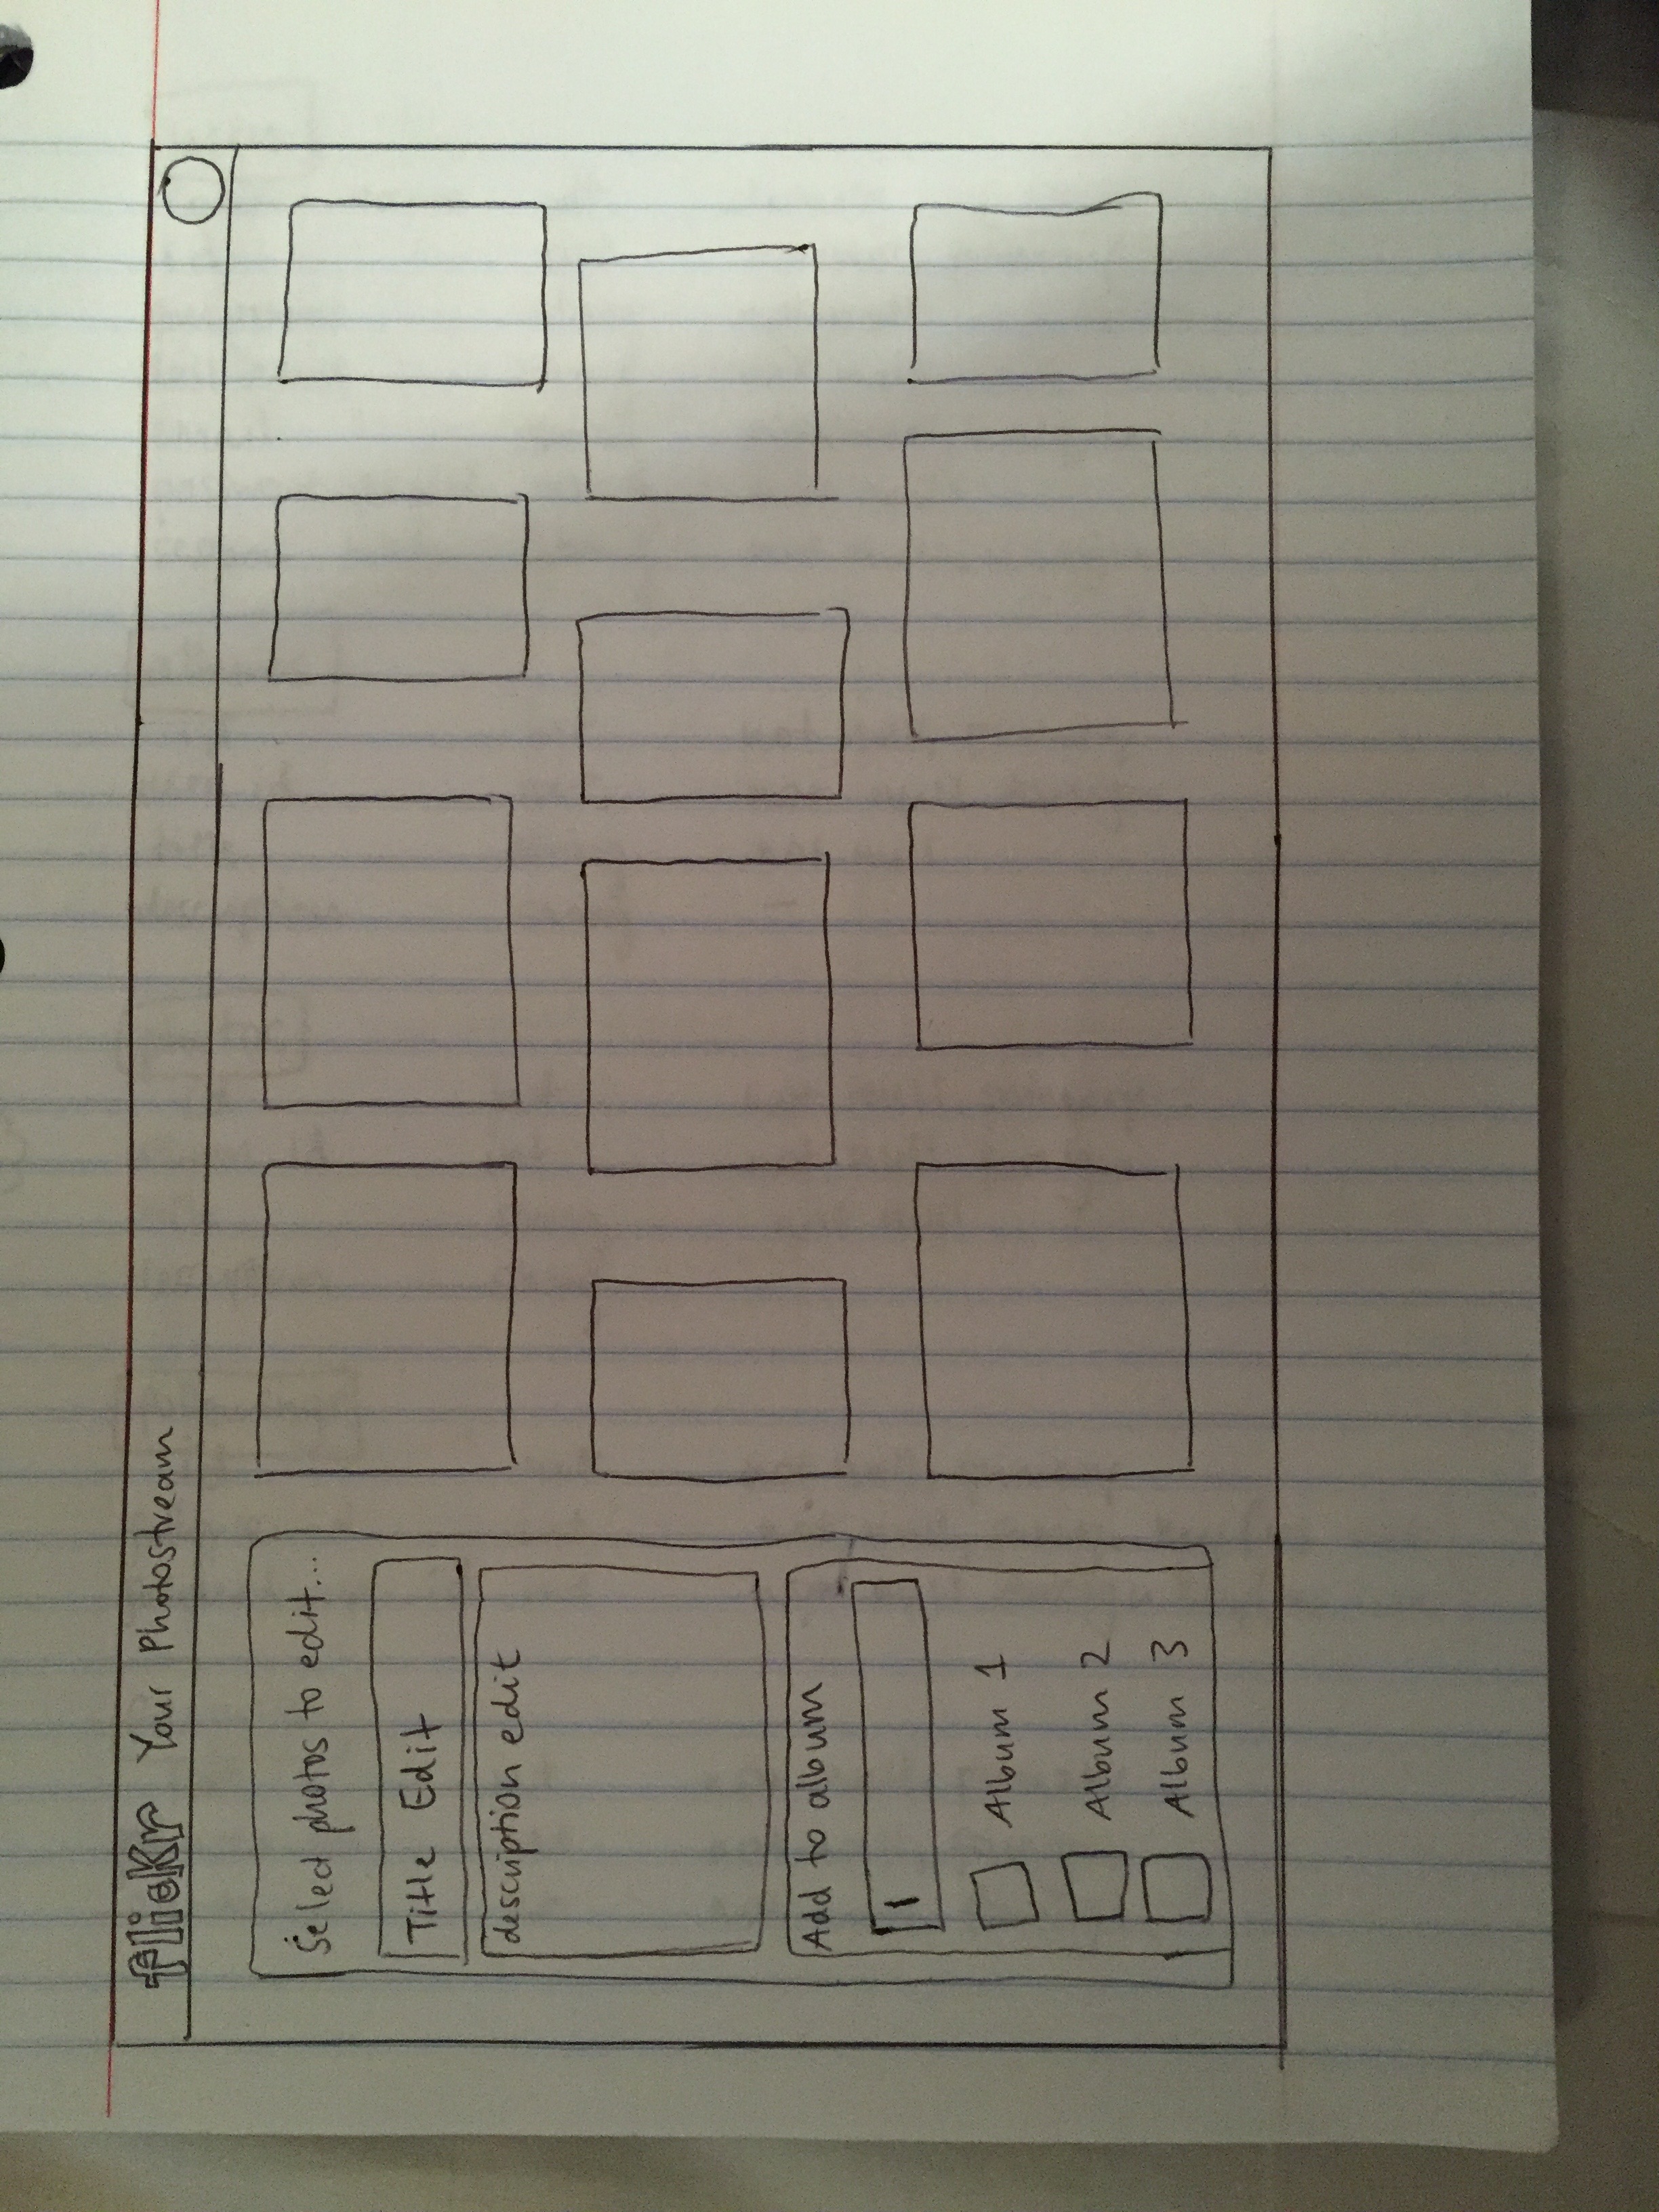 flickr Your Photostream
Select photos to edit...
Title Edit
description edit
Add to album
Album 1
Album 2
Album 3